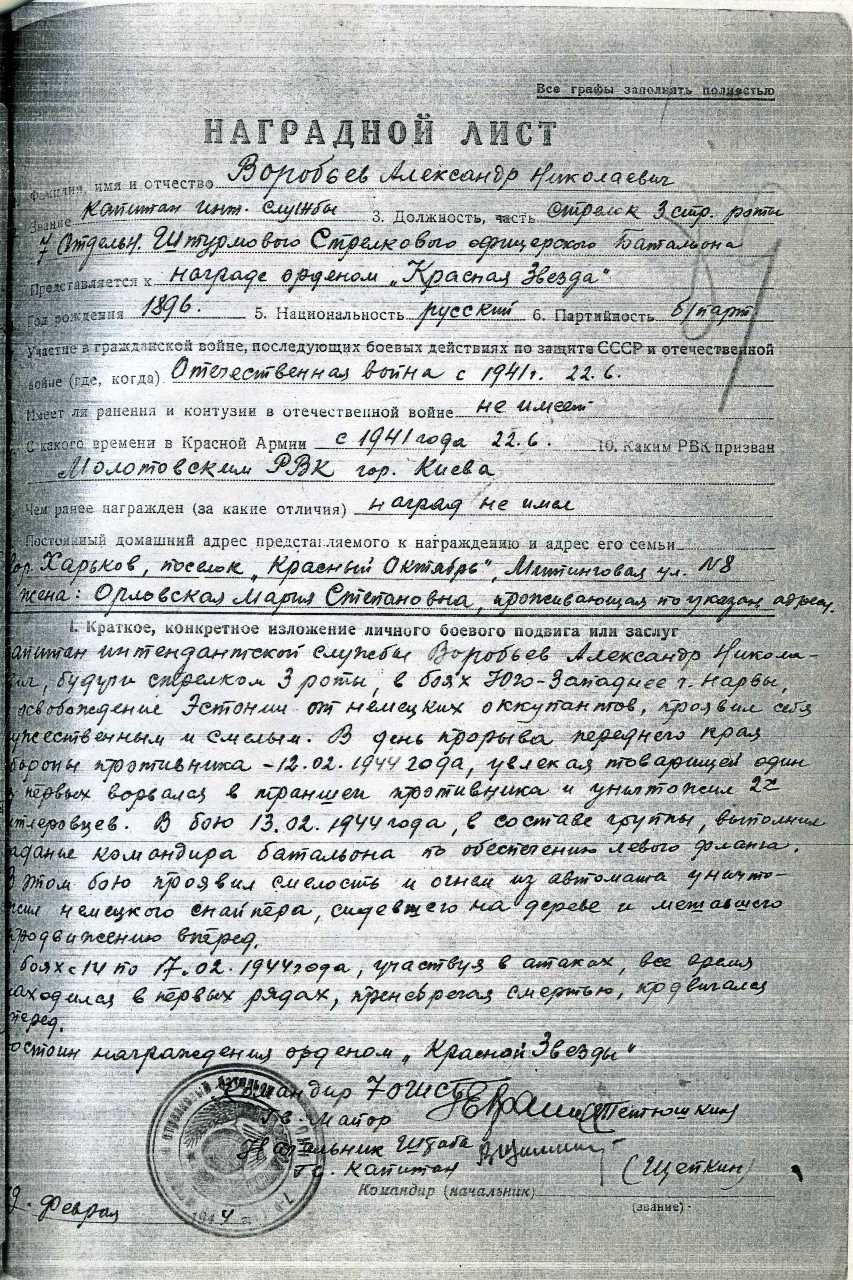 Все графы заполнять полностью
НАГРАДНОЙ ЛИСТ
Фамилия, имя и отчество Воробьев Александр Николаевич
Звание капитан инт. службы 3. Должность, часть стрелок 3 стр. роты
7 Отдельн. Штурмового Стрелкового офицерского Батальона
Представляется к награде орденом „Красная Звезда"
Год рождения 1896. 5. Национальность русский 6. Партийность б/парт
Участие в гражданской войне, последующих боевых действиях по защите СССР и отечественной
войне (где, когда) Отечественная война с 1941г. 22.6.
Имеет ли ранения и контузии в отечественной войне не имеет
С какого времени в Красной Армии с 1941 года 22.6. 10. Каким РВК призван
Молотовским РВК гор. Киева
Чем ранее награжден (за какие отличия) наград не имел
Постоянный домашний адрес представляемого к награждению и адрес его семьи
гор. Харьков, поселок „Красный Октябрь", Митинговая ул. N8
жена: Орловская Мария Степановна, проживающая по указан. адресу.
I. Краткое, конкретное изложение личного боевого подвига или заслуг
апитан интендантской службы Воробьев Александр Никола-
вич, будучи стрелком 3 роты, в боях Юго-Западнее г. Нарвы,
освобождение Эстонии от немецких оккупантов, проявил себя
ужественным и смелым. В день прорыва переднего края
бороны противника - 12.02.1944 года, увлекая товарищей один
из первых ворвался в траншеи противника и уничтожил 2х
итлеровцев. В бою 13.02.1944 года, в составе группы, выполнил
задание командира батальона по обеспечению левого фланга.
В этом бою проявил смелость и огнем из автомата уничто-
жил немецкого снайпера, сидевшего на дереве и мешавшего
продвижению вперед.
боях с 14 по 17.02.1944 года, участвуя в атаках, все время
находился в первых рядах, пренебрегая смертью, продвигался
вперед.
остоин награждения орденом „Красной Звезды"
Командир 7 ОШСБ
Гв. майор Тетюшкин
Начальник Штаба
Гв. Капитан (Щепкин)
Командир (начальник)
(звание)
февраля 1944 г.